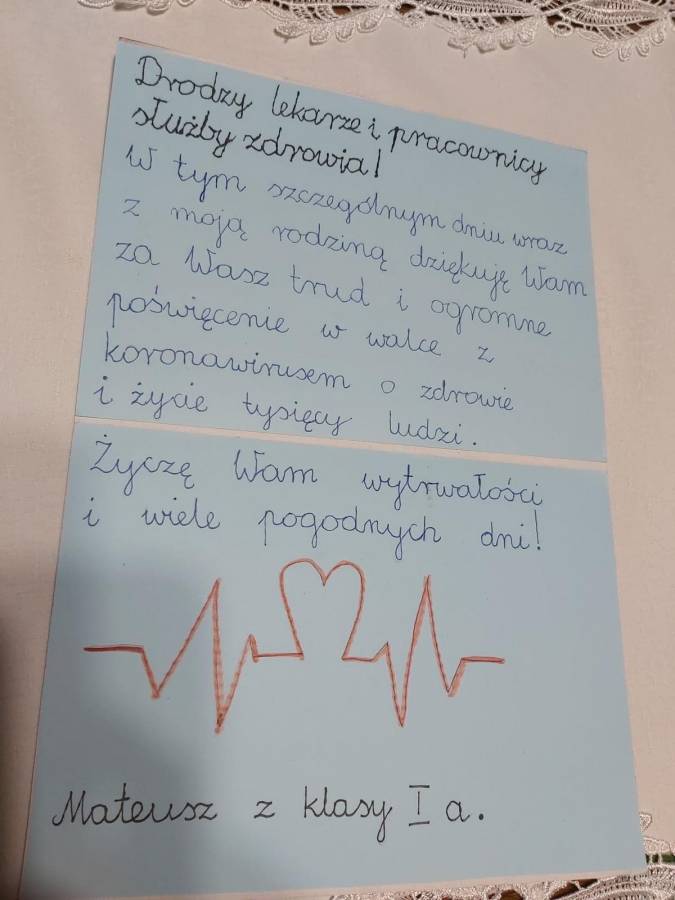 Drodzy lekarze i pracownicy
służby zdrowia!
W tym szczególnym dniu wraz
z moją rodziną dziękuję Wam
za Wasz trud i ogromne
poświęcenie w walce z
koronawirusem o zdrowie
i życie tysięcy ludzi.
Życzę Wam wytrwałości
i wiele pogodnych dni!
Mateusz z klasy I a.